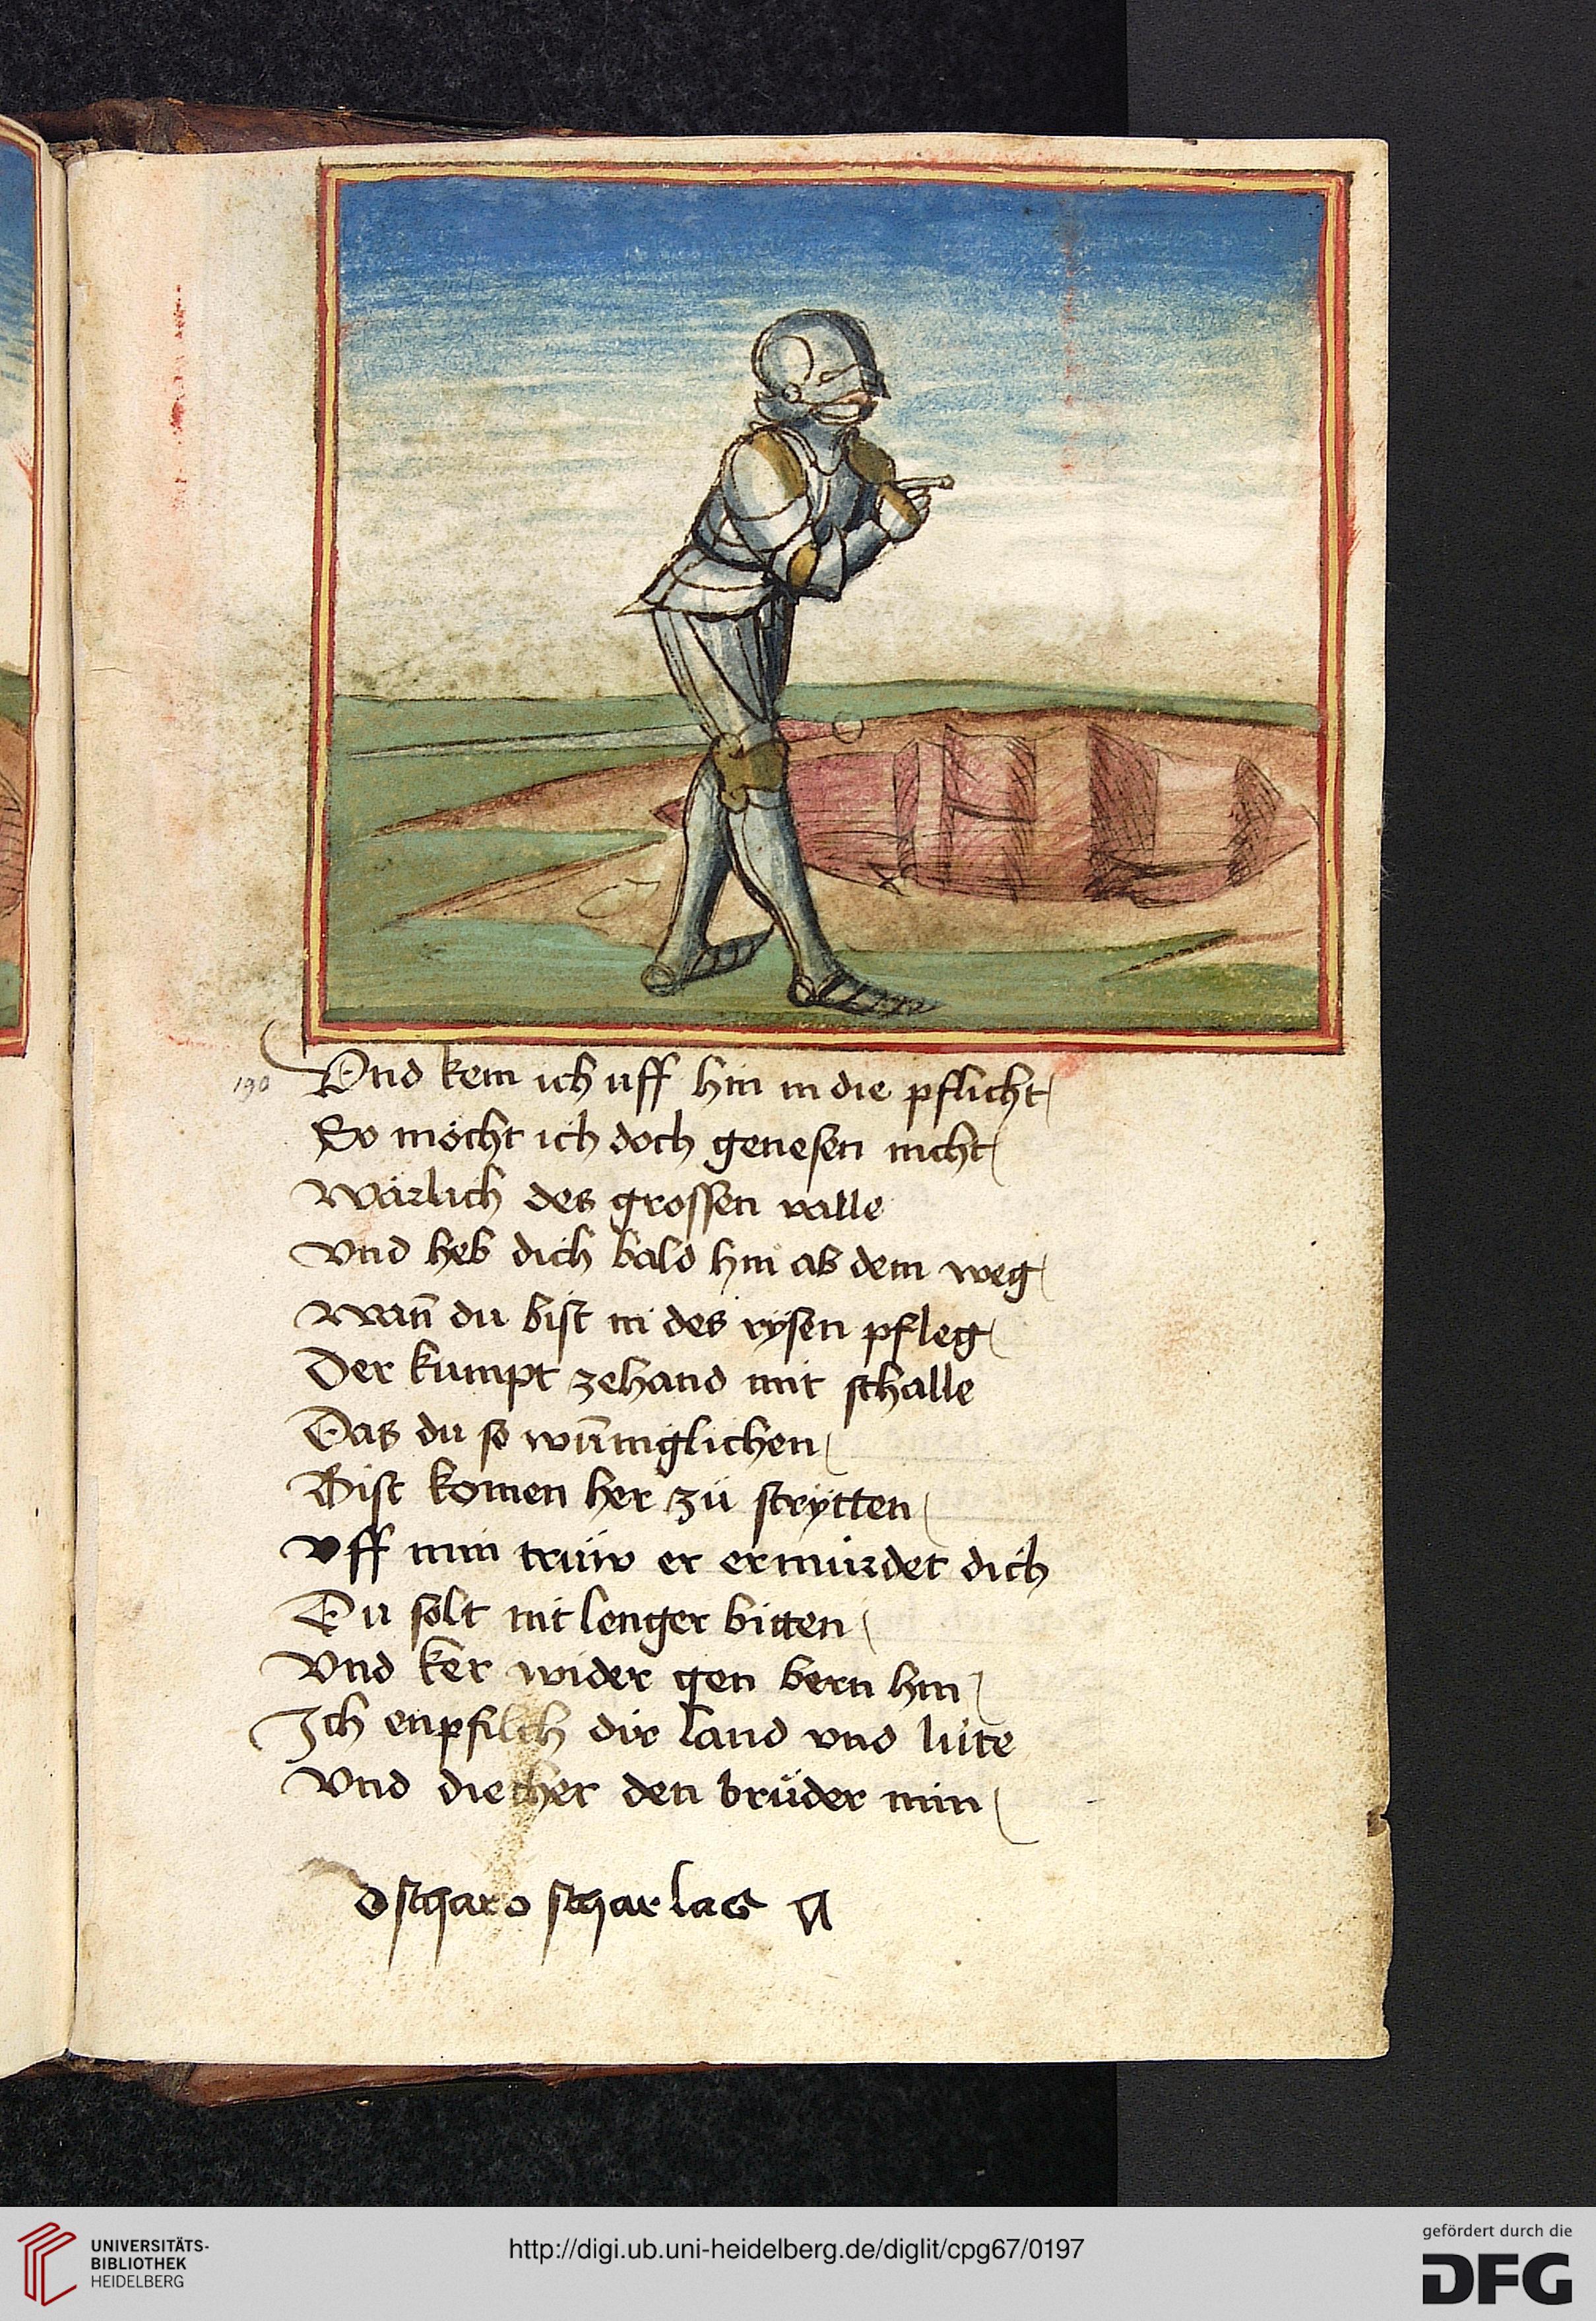 190
Vnd kem ich uff hin in die pflicht
So möcht ich doch genesen nicht
Wärlich des grossen valle
vnd heb dich bald hin ab dem weg
Wan̄ du bist in des rÿsen pfleg
Der kumpt zehand mit schalle
Das du so wun̄niglichen
Bist komen her zü strÿtten
Vff min trüw er ermürdet dich
Du solt nit lenger bitten
Vnd ker wider gen bern hin
Ich enpfilch dir land vnd lüte
Vnd die ther den brüder min
UNIVERSITÄTS-
BIBLIOTHEK
HEIDELBERG
http://digi.ub.uni-heidelberg.de/diglit/cpg67/0197
gefördert durch die
DFG